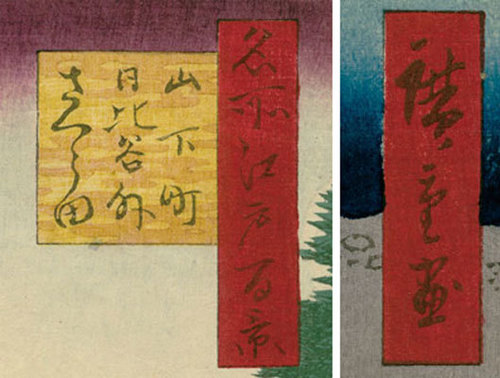 名所江戸百景
山下町
日比谷外
さくら田
廣重画